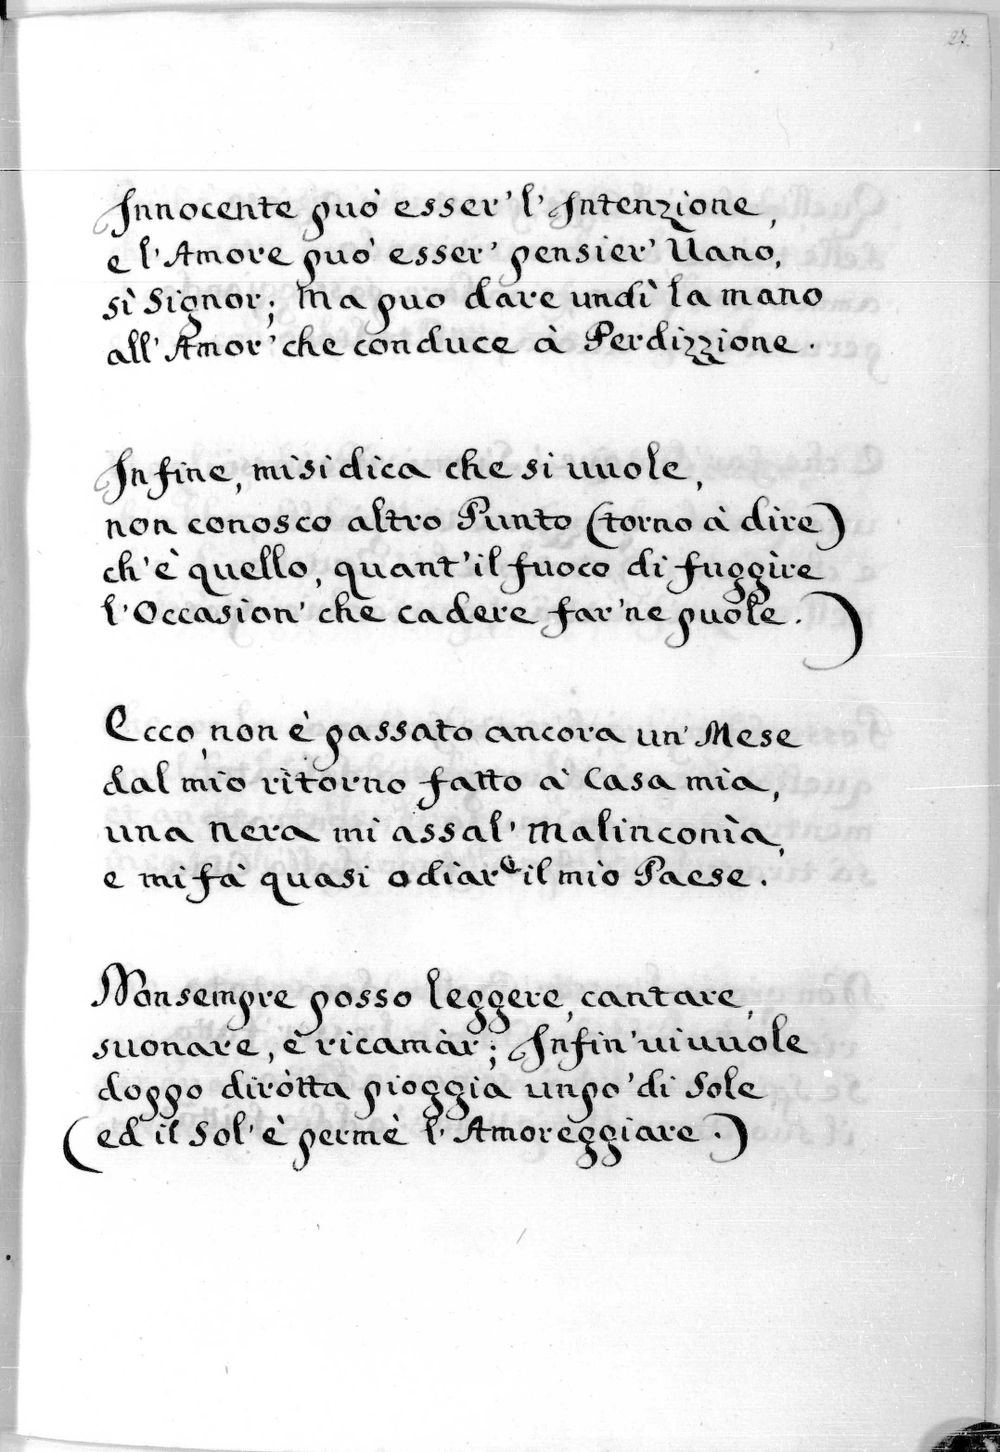 27.
Innocente può esser' l'Intenzione,
e l'Amore può esser' pensier' Uano,
sì Signor; Ma puo dare undì la mano
all'Amor' che conduce à Perdizzione.
Infine, misi dica che si uuole,
non conosco altro Punto (torno à dire)
ch'è quello, quant'il fuoco di fuggire
l'Occasion' che cadere far'ne puole.)
Ecco, non è passato ancora un' Mese
dal mio ritorno fatto à Casa mia,
una Nera mi assal' Malinconìa,
e mi fà quasi odiare il mio Paese.
Non sempre posso leggere, cantare,
suonare, è ricamàr; Infin' ui uuole
doppo diròtta pioggia unpo' di Sole
(ed il Sol' è permè l'Amoreggiare.)